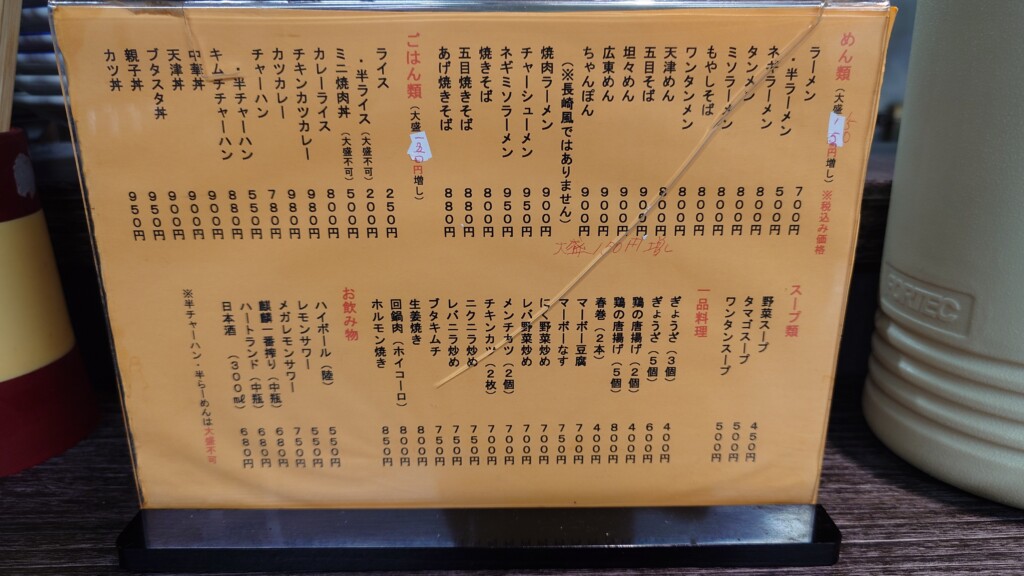 めん類(大盛150円増し) ※税込み価格
ラーメン 700円
・半ラーメン 500円
ネギラーメン 800円
タンメン 800円
ミソラーメン 800円
もやしそば 800円
ワンタンメン 800円
天津メン 800円
五目そば 900円
坦々めん 900円
広東めん 900円
ちゃんぽん 900円
(※長崎風ではありません)
焼肉ラーメン 900円
チャーシューメン 950円
ネギミソラーメン 950円
焼きそば 800円
五目焼きそば 880円
あげ焼きそば 880円
大盛150円増し
ごはん類(大盛 円増し)
ライス 250円
・半ライス(大盛不可) 200円
ミニ焼肉丼(大盛不可) 500円
カレーライス 800円
チキンカツカレー 980円
カツカレー 980円
チャーハン 780円
・半チャーハン 550円
キムチチャーハン 880円
中華丼 900円
天津丼 900円
ブタスタ丼 900円
親子丼 950円
カツ丼 950円
スープ類
野菜スープ 450円
タマゴスープ 500円
ワンタンスープ 500円
一品料理
ぎょうざ(3個) 400円
ぎょうざ(5個) 600円
鶏の唐揚げ(2個) 400円
鶏の唐揚げ(5個) 800円
春巻(2本) 400円
マーボー豆腐 700円
マーボーなす 750円
にく野菜炒め 700円
レバ野菜炒め 700円
メンチカツ(2個) 700円
チキンカツ(2枚) 700円
ニクニラ炒め 750円
レバニラ炒め 750円
ブタキムチ 750円
生姜焼き 800円
回鍋肉(ホイコーロ) 800円
ホルモン焼き 850円
お飲み物
ハイボール(陸) 550円
レモンサワー 550円
メガレモンサワー 750円
麒麟一番搾り(中瓶) 680円
ハートランド(中瓶) 680円
日本酒(300㎖) 680円
※半チャーハン・半らーめんは大盛不可